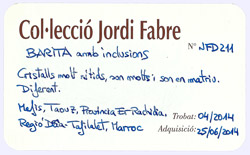 Col·lecció Jordi Fabre
BARITA amb inclusions Nº JFD211
Cristalls molt nítids, són molts i són en matriu.
Diferent.
Mefis, Taouz, Província Er-Rachidia, Trobat: 04/2014
Regió Dràa-Tafilalet, Marroc Adquisició: 25/06/2014